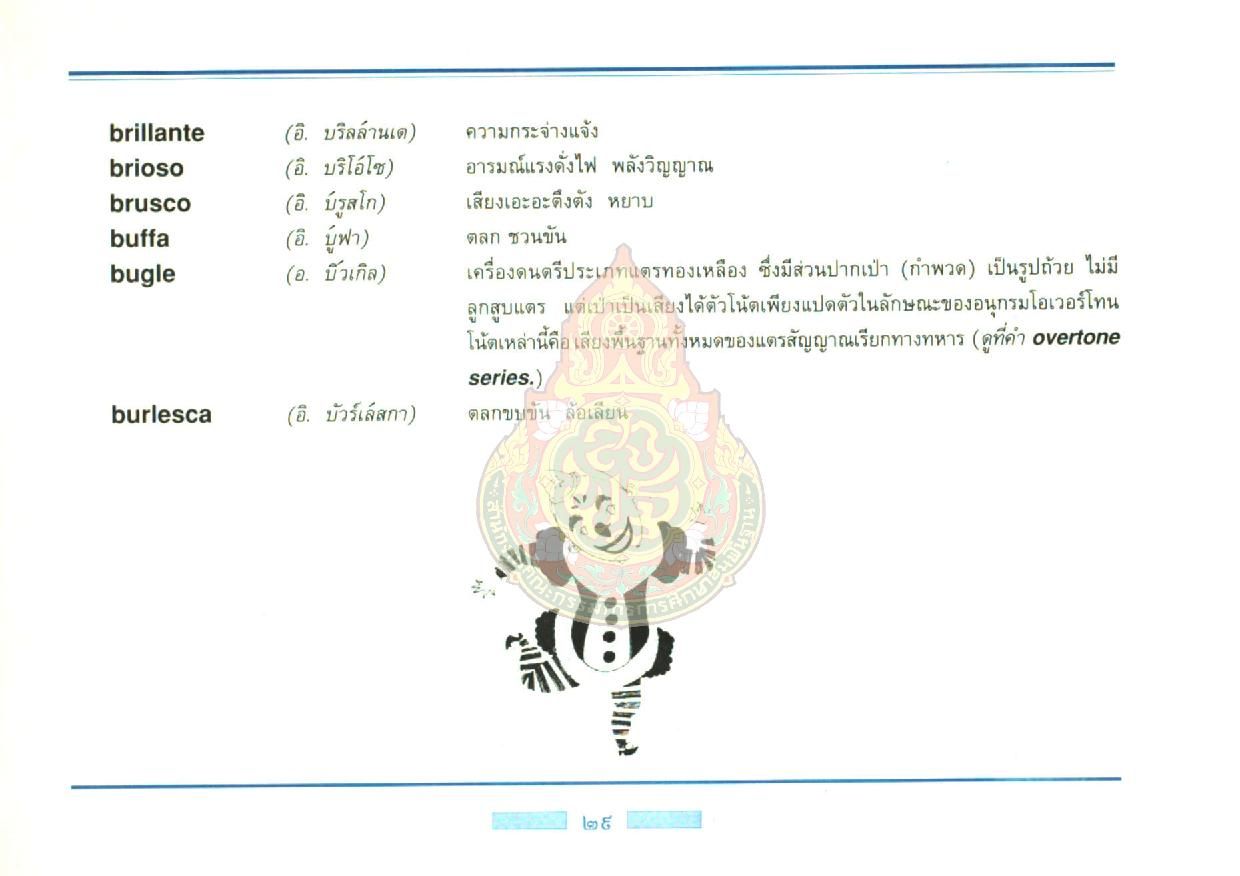 brillante (อิ. บริลล์านเต) ความกระจ่างแจ้ง
brioso (อิ. บริโอ์โซ) อารมณ์แรงดั่งไฟ พลังวิญญาณ
brusco (อิ. บ์รูสโก) เสียงเอะอะตึงตัง หยาบ
buffa (อิ. บ์ูฟา) ตลก ชวนขัน
bugle (อ. บิ๊วเกิล) เครื่องดนตรีประเภทแตรทองเหลือง ซึ่งมีส่วนปากเป่า (กำพวด) เป็นรูปถ้วย ไม่มี
ลูกสูบแตร แต่เป่าเป็นเสียงได้ตัวโน้ตเพียงแปดตัวในลักษณะของอนุกรมโอเวอร์โทน
โน้ตเหล่านี้คือเสียงพื้นฐานทั้งหมดของแตรสัญญาณเรียกทางทหาร (ดูที่คำ overtone
series.)
burlesca (อิ. บัวร์เล์สกา) ตลกขบขัน ล้อเลียน
สำนักงานคณะกรรมการการศึกษาขั้นพื้นฐาน
๒๙